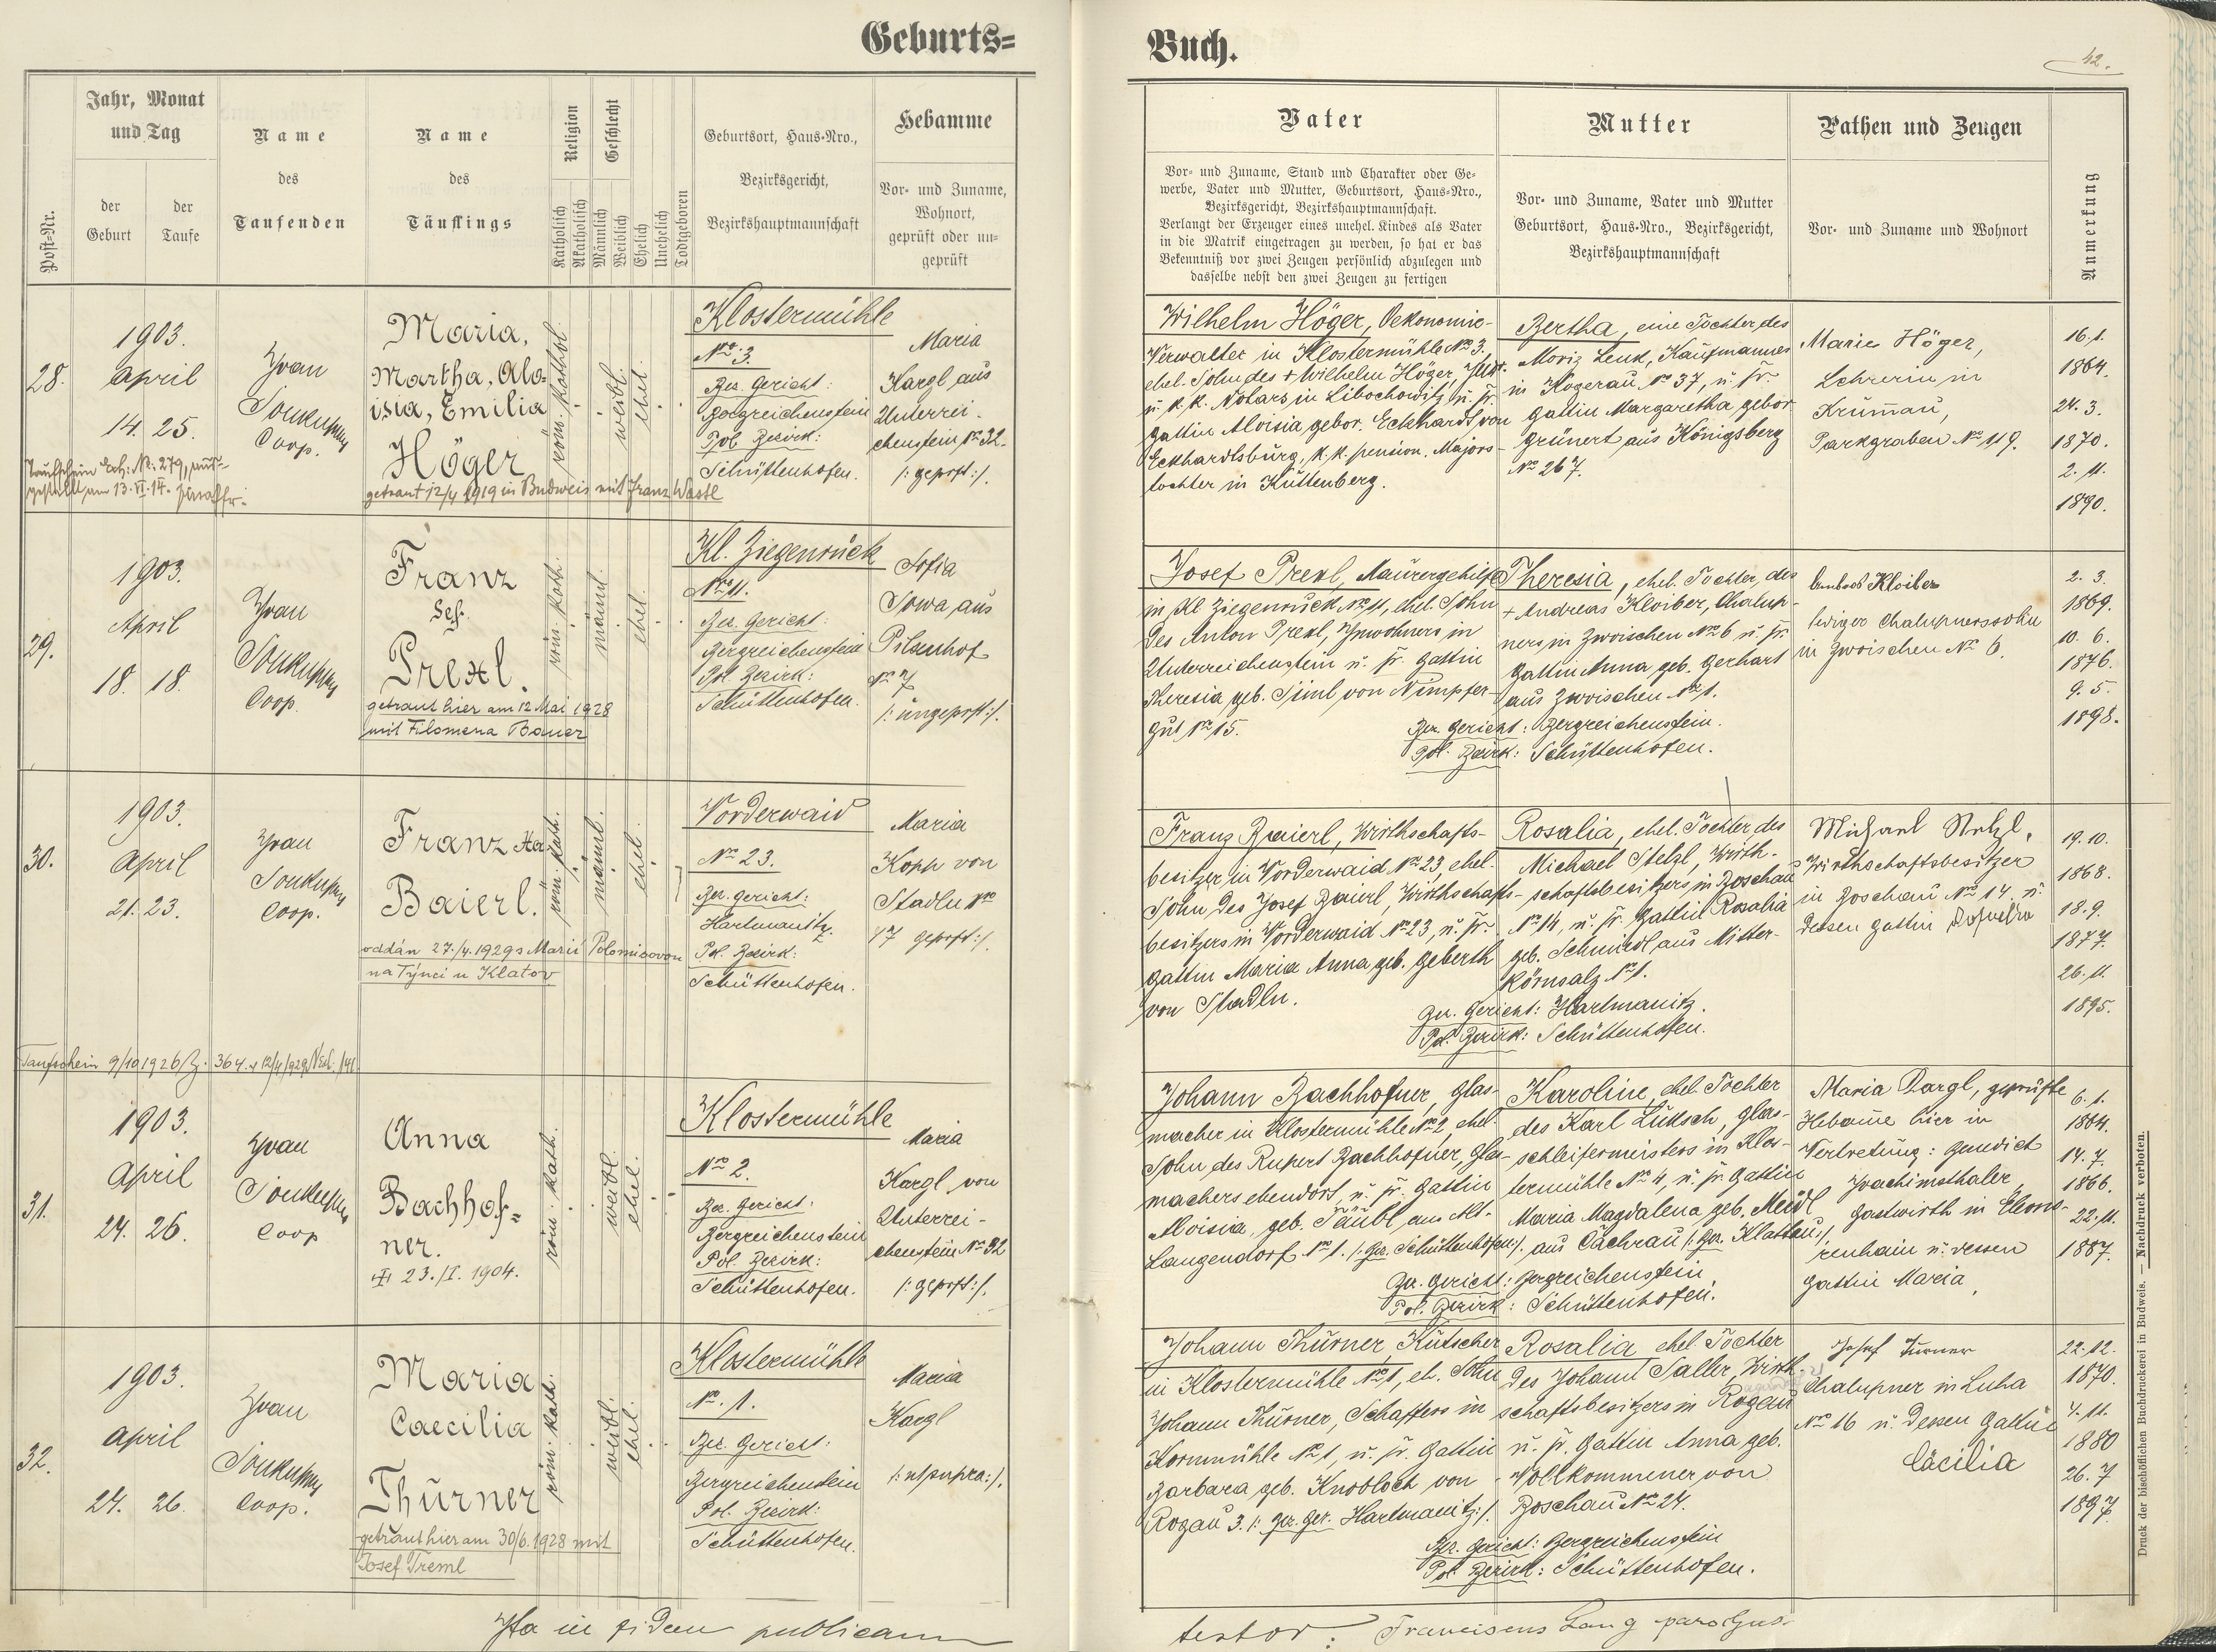 Geburts=
Buch.
42.
Post-Nr.
Jahr, Monat
und Tag
der
Geburt
der
Taufe
Name
des
Taufenden
Name
des
Täuflings
Religion
Katholisch
Akatholisch
Geschlecht
Männlich
Weiblich
Ehelich
Unehelich
Todtgeboren
Geburtsort, Haus-Nro.,
Bezirksgericht,
Bezirkshauptmannschaft
Hebamme
Vor- und Zuname,
Wohnort,
geprüft oder un-
geprüft
Vater
Vor- und Zuname, Stand und Charakter oder Ge-
werbe, Vater und Mutter, Geburtsort, Haus-Nro.,
Bezirksgericht, Bezirkshauptmannschaft.
Verlangt der Erzeuger eines unehel. Kindes als Vater
in die Matrik eingetragen zu werden, so hat er das
Bekenntniß vor zwei Zeugen persönlich abzulegen und
dasselbe nebst den zwei Zeugen zu fertigen
Mutter
Vor- und Zuname, Vater und Mutter
Geburtsort, Haus-Nro., Bezirksgericht,
Bezirkshauptmannschaft
Pathen und Zeugen
Vor- und Zuname und Wohnort
Anmerkung
28.
1903.
April
14. 25.
Yvan
Soukupp
Coop.
Maria,
Martha, Alo-
isia, Emilia
Höger
getraut 12/4 1919 in Budweis mit Franz Wastl
röm. kathol
weibl.
ehel.
Klostermühle
No. 3.
Bez. Gericht:
Bergreichenstein
Pol. Bezirk:
Schüttenhofen.
Maria
Kargl aus
Unterrei-
chenstein No 32.
/: geprft :/.
Wilhelm Höger, Oekonomie-
Verwalter in Klostermühle No 3.
ehel. Sohn des + Wilhelm Höger,
u. k.k. Notars in Libochowitz, u. fr.
Gattin Aloisia gebor. Eckhardt von
Eckhardtsburg, k.k. pension. Majors-
tochter in Kuttenberg.
Bertha, eine Tochter des
Moriz Lenk, Kaufmannes
in Kogerau, No 37, u. fr.
Gattin Margaretha gebor
Grünert aus Königsberg
No 267.
Marie Höger,
Lehrerin in
Krumau,
Parkgraben No 119.
16. 1.
1864.
24. 3.
1870.
2. 11.
1890.
29.
1903.
April
18. 18.
Yvan
Soukupp
Coop.
Franz
Ses.
Prexl.
getraut hier am 12 Mai 1928
mit Filomena Bauer
röm. kath.
männl.
ehel.
Kl. Ziegenrück
No 11.
Bez. Gericht:
Bergreichenstein
Pol. Bezirk:
Schüttenhofen.
Sofia
Sowa aus
Pilsenhof
No 7
/: ungeprft :/.
Josef Prexl, Maurergehilfe
in Kl Ziegenruck No 11, ehel. Sohn
des Anton Prexl, Ynwohners in
Unterreichenstein u. fr. Gattin
Theresia geb. Siml von Nimpfer-
gut No 15.
Theresia, ehel. Tochter, des
+ Andreas Kloiber, Chalup-
ners in Zwoischen No 6 u. fr.
Gattin Anna geb. Gerhart
aus Zwoischen No 1.
Bez. Gericht: Bergreichenstein.
Pol. Bezirk: Schüttenhofen.
Kloiber
lediger Chalupnerssohn
in Zwoischen No 6.
2. 3.
1869.
10. 6.
1876.
9. 5.
1898.
30.
1903.
April
21. 23.
Yvan
Soukupp
Coop.
Franz
Baierl.
oddán 27./4. 1929 s Marií Polomisovou
na Týnci u Klatov
röm. kath.
männl.
ehel.
Vorderwaid
No 23.
Bez. Gericht:
Hartmanitz.
Pol. Bezirk:
Schüttenhofen.
Maria
Kopp von
Stadln No
47 geprft :/.
Franz Baierl, Wirthschafts-
besitzer in Vorderwaid No 23, ehel.
Sohn des Josef Baierl, Wirthschafts-
besitzers in Vorderwaid No 23, u. fr.
Gattin Maria Anna geb. Geberth
von Stadln.
Rosalia, ehel. Tochter des
Michael Stelzl, Wirth-
schaftsbesitzers in Boschau
No 14, u. fr. Gattin Rosalia
geb. Schmiedl aus Mitter-
körnsalz No 1.
Bez. Gericht: Hartmanitz.
Pol. Bezirk: Schüttenhofen.
Michael Stelzl,
Wirthschaftsbesitzer
in Boschau No 14 u.
dessen Gattin Rosalia
19. 10.
1868.
18. 9.
1877.
26. 11.
1895.
Taufschein 9/10 1926 Z. 364. u 12/4/1929
31.
1903.
April
24. 26.
Yvan
Soukupp
Coop
Anna
Bachhof=
ner.
23./I. 1904.
röm. kath.
weibl.
ehel.
Klostermühle
No 2.
Bez. Gericht:
Bergreichenstein
Pol. Bezirk:
Schüttenhofen.
Maria
Kargl von
Unterrei-
chenstein No 32
/: geprft :/.
Johann Bachhofner, Glas-
macher in Klostermühle No 2, ehel.
Sohn des Rupert Bachhofner, Glas-
machers ebendort, u. fr. Gattin
Aloisia, geb. Täubl, aus Alt-
Langendorf No 1. /: Bez. Schüttenhofen :/.
Karoline, ehel. Tochter
des Karl Luksch, Glas-
schleifermeisters in Klos-
termühle No 4, u. fr. Gattin
Maria Magdalena geb. Meidl
aus Cachrau /: Bez. Klattau :/.
Bez. Gericht: Bergreichenstein.
Pol. Bezirk: Schüttenhofen.
Maria Kargl, geprüfte
Hebame hier in
Vertretung: Benedict
Joachimsthaler
Gastwirth in Eleono-
renhain u. dessen
Gattin Maria
6. 1.
1864.
14. 7.
1866.
22. 11.
1887.
32.
1903.
April
24. 26.
Yvan
Soukupp
Coop.
Maria
Caecilia
Thürner
getraut hier am 30/6. 1928 mit
Josef Treml
röm. kath.
weibl.
ehel.
Klostermühle
No. 1.
Bez. Gericht:
Bergreichenstein
Pol. Bezirk:
Schüttenhofen.
Maria
Kargl
/: ut supra :/.
Johann Thürner Kutscher
in Klostermühle No 1, eh. Sohn
Johann Thürner, Schaffers in
Kornmühle No 1, u. fr. Gattin
Barbara geb. Knobloch von
Rogau 3. /: Bez. Ger. Hartmanitz :/.
Rosalia ehel. Tochter
des Johann Saller, Wirth-
schaftsbesitzers in Rogau
u. fr. Gattin Anna geb.
Vollkommener von
Boschau No 24.
Bez. Gericht: Bergreichenstein
Pol. Bezirk: Schüttenhofen.
Josef Türner
Chalupner in Luha
No 16 u. dessen Gattin
Cäcilia
22. 12.
1870.
4. 11.
1880
26. 7
1897
Ita in fidem publicam
testor: Franciscus Lang parochus.
Druck der bischöflichen Buchdruckerei in Budweis. — Nachdruck verboten.